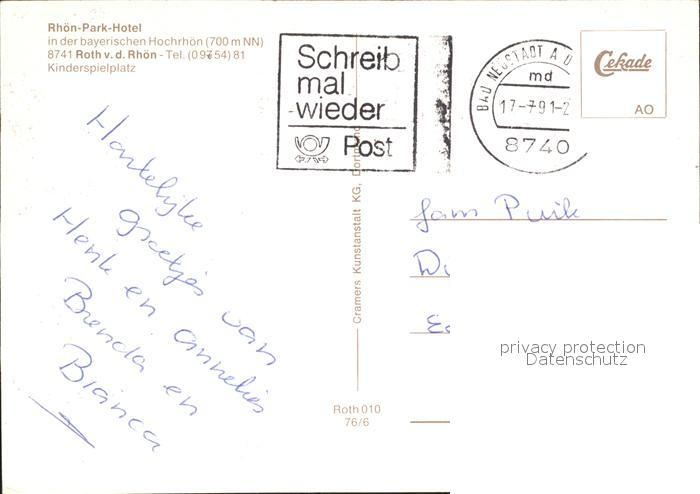 Rhön-Park-Hotel
in der bayerischen Hochrhön (700 m NN)
8741 Roth v. d. Rhön - Tel. (09754) 81
Kinderspielplatz
Schreib
mal
wieder
Post
BAD NEUSTADT A D
md
17-791-2
8740
Cekade
AO
Hartelijke
groetjes van
Henk en Annelies
Brenda en
Bianca
Cramers Kunstanstalt KG, Dortmund
Roth 010
76/6
Fam Puik
privacy protection
Datenschutz